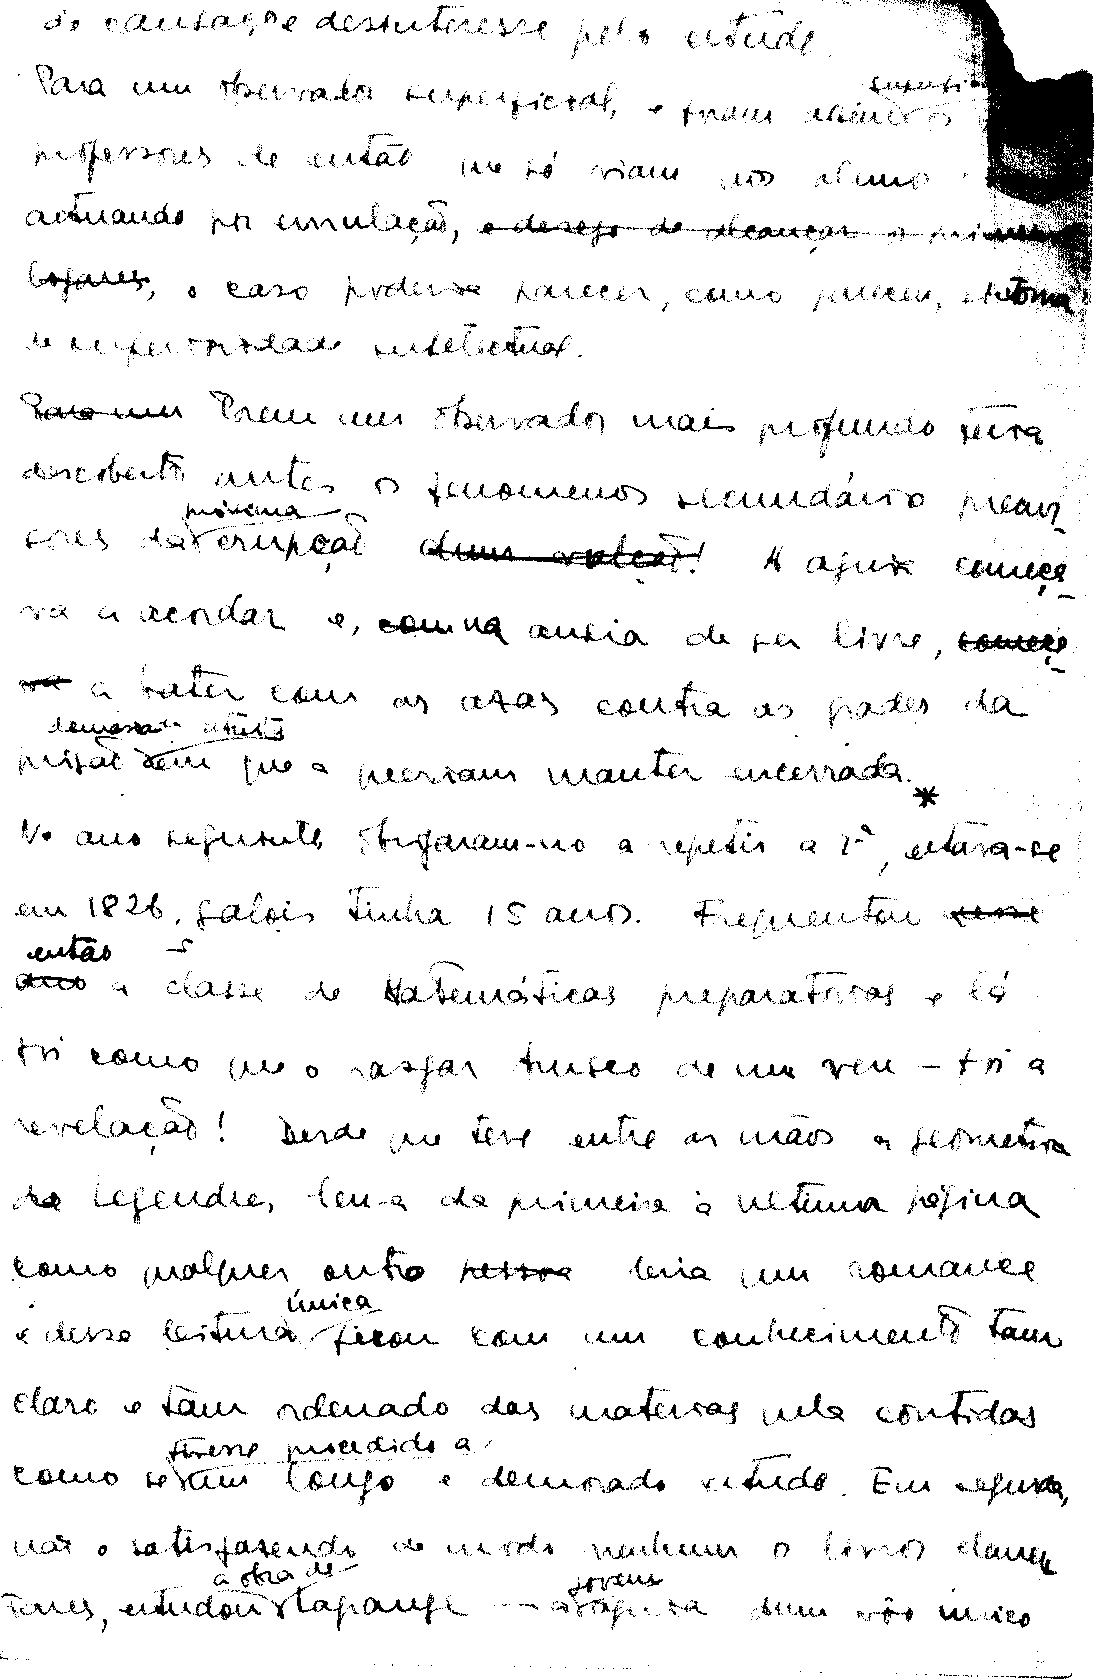 de cansaço e desinteresse pelo estudo.
Para um observador superficial, e foram
professores de então que só viam nos alunos
actuando por emulação, e desejo de alcançar os primeiros
logares, o caso poderia parecer, como pareceu, sintoma
de inferioridade intelectual.
Para um Porem um observador mais profundo teria
descoberto antes os fenomenos secundários precur-
próxima
sores da erupção dum vulcão! A aguia começa-
va a acordar e, com na ansia de ser livre, começa-
va a bater com as azas contra as grades da
demasiado estreita
prisão em que a queriam manter encerrada.*
No ano seguinte obrigaram-no a repetir a 2ª, estava-se
em 1826, Galois tinha 15 anos. Frequentou nesse
então
ano a classe de Matemáticas preparatórias e lá
foi como que o rasgar brusco de um veu – foi a
revelação! Desde que teve entre as mãos a geometria
de Legendre, leu-a da primeira à ultima página
como qualquer outro pessoa leria um romance
única
e dessa leitura ficou com um conhecimento tam
claro e tam ordenado das materias nela contidas
tivesse procedido a
como se um longo e demorado estudo. Em seguida,
não o satisfazendo de modo nenhum os livros elemen-
a obra de
tares, estudou Lagrange —
jovem
a aguia dum vôo unico